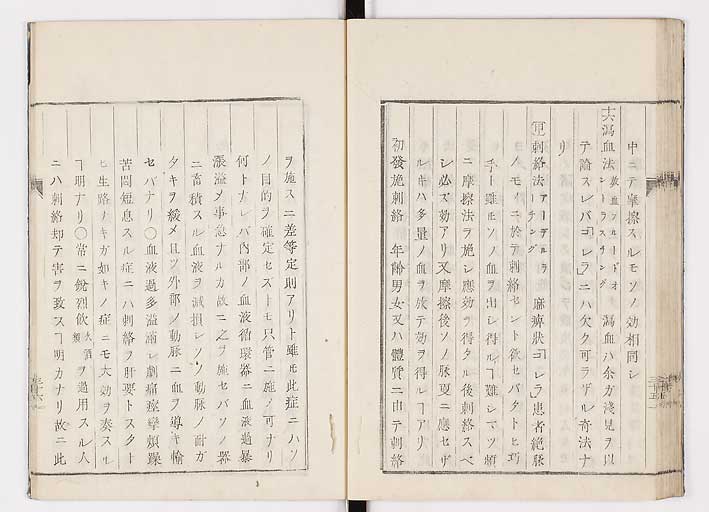 中ニテ摩擦スルモソノ効相同シ
六瀉血法 放血ブルードオシラスチング 瀉血ハ余ガ淺見ヲ以
テ論スレバ「コレラ」ニハ欠ク可ラザル奇法ナ
リ
甲刺絡法 アーデルラーチング 麻痺狀「コレラ」患者絶脉
ノモノニ於テ刺絡セント欲セバタトヒ巧
手ト雖モソノ血ヲ出シ得ルヿ難シマヅ頻
ニ摩擦法ヲ施シ應効ヲ得タル後刺絡スベ
シ必ズ効アリ又摩擦後ソノ脉更ニ應セザ
ルキハ多量ノ血ヲ放テ効ヲ得ルヿアリ
初發施刺絡 年齢男女又ハ體質ニ由テ刺絡
ヲ施スニ差等定則アリト雖モ此症ニハソ
ノ目的ヲ確定セズトモ只管ニ施ノ可ナリ
何トナレバ内部ノ血液循環器ニ血液過暴
漲溢メ事急ナルカ故ニ之ヲ施セバソノ器
ニ畜積スル血液ヲ减損シソノ動脉ノ耐ガ
タキヲ緩メ且ツ外部ノ動脉ニ血ヲ導キ輸
セバナリ〇血液過多溢滿シ劇痛瘈攣煩躁
苦悶短息スル症ニハ刺絡ヲ肝要トスクト
ヒ生路ノキガ如キノ症ニモ大効ヲ奏スル
ヿ明ナリ〇常ニ鋭烈飲 火酒類 ヲ過用スル人
ニハ刺絡却テ害ヲ致スヿ明カナリ故ニ此